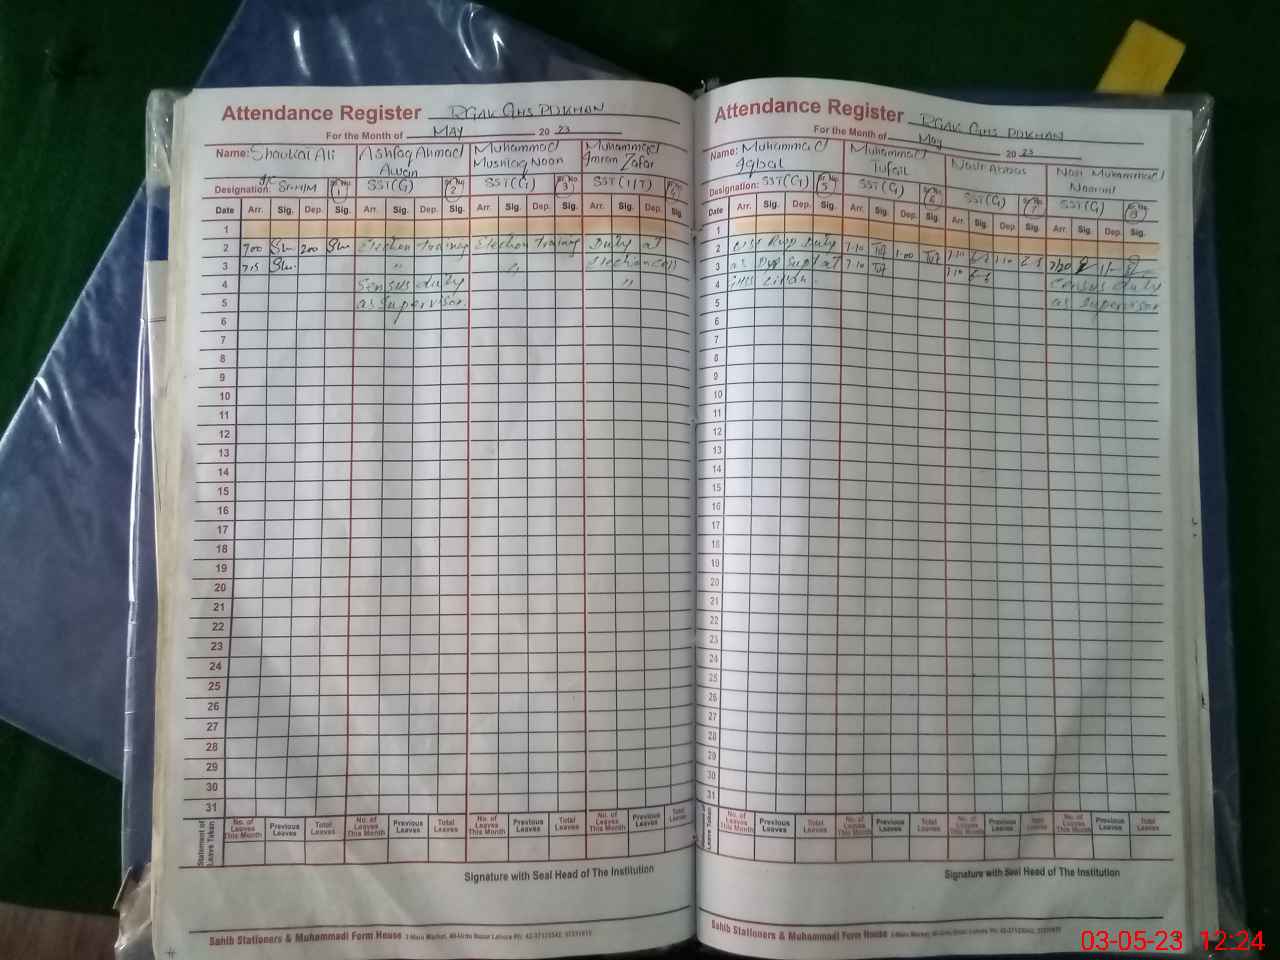 Attendance Register RGAK GHS PDKHAN
For the Month of MAY 2023
Name: Shaukat Ali Ashfaq Ahmad Awan Muhammad Mushtaq Noon Muhammad Imran Zafar
Designation: SSHM Sr No 1 SST(G) Sr No 2 SST(G) Sr No 3 SST(IT) Sr No
Date Arr. Sig. Dep. Sig. Arr. Sig. Dep. Sig. Arr. Sig. Dep. Sig. Arr. Sig. Dep. Sig.
1
2 700 200 Election Training Election Training Duty at
3 715 "
4 Census duty "
5 as Supervisor.
6
7
8
9
10
11
12
13
14
15
16
17
18
19
20
21
22
23
24
25
26
27
28
29
30
31
Statement of Leave Taken
No. of Leaves This Month Previous Leaves Total Leaves No. of Leaves This Month Previous Leaves Total Leaves No. of Leaves This Month Previous Leaves Total Leaves No. of Leaves This Month Previous Leaves Total Leaves
Signature with Seal Head of The Institution
Sahib Stationers & Muhammadi Form House
Attendance Register RGAK GHS PDKHAN
For the Month of May 2023
Name: Muhammad Iqbal Muhammad Tufail Nasir Abbas Muhammad
Designation: SST(G) Sr No 5 SST(G) Sr No 6 SST(G) Sr No 7 SST(G) Sr No 8
Date Arr. Sig. Dep. Sig. Arr. Sig. Dep. Sig. Arr. Sig. Dep. Sig. Arr. Sig. Dep. Sig.
1
2 Duty 7.10 1.00 7.10 1.10
3 as at 7.10 7.10 7/20
4 Census duty
5 as Supervisor
6
7
8
9
10
11
12
13
14
15
16
17
18
19
20
21
22
23
24
25
26
27
28
29
30
31
No. of Leaves This Month Previous Leaves Total Leaves No. of Leaves This Month Previous Leaves Total Leaves No. of Leaves This Month Previous Leaves Total Leaves No. of Leaves This Month Previous Leaves Total Leaves
Signature with Seal Head of The Institution
Sahib Stationers & Muhammadi Form House
03-05-23 12:24